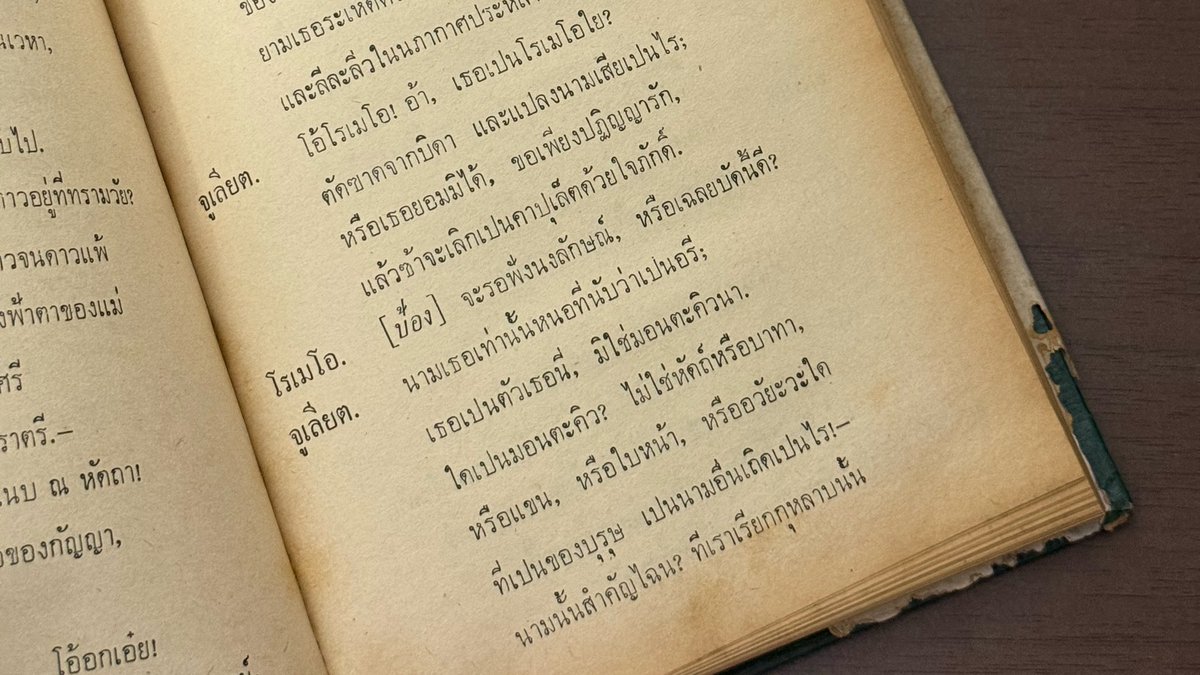 นเวหา,
บไป.
าวอยู่ที่ทรามวัย?
วจนดาวแพ้
งฟ้าตาของแม่
ศรี
ราตรี.—
นบ ณ หัดถา!
ของกัญญา,
โอ้อกเอ๋ย!
ยามเธอระเหิด
และลีสะลิ่วในนภากาศประหเ
จูเลียต. โอ้โรเมโอ! อ้า, เธอเปนโรเมโอใย?
ตัดซาดจากบิดา และแปลงนามเสียเปนไร;
หรือเธอยอมมิได้, ขอเพียงปฏิญญารัก,
แล้วซ้าจะเลิกเปนคาปุเล็ตด้วยใจภักดิ์.
โรเมโอ. [ป้อง] จะรอฟังนงลักษณ์, หรือเฉลยบัดนี้ดี?
จูเลียต. นามเธอเท่านั้นหนอที่นับว่าเปนอรี;
เธอเปนตัวเธอนี่, มิใช่มอนตะคิวนา.
ใดเปนมอนตะคิว? ไม่ใช่หัดถ์หรือบาทา,
หรือแขน, หรือใบหน้า, หรืออวัยะวะใด
ที่เปนของบุรุษ เปนนามอื่นเถิดเปนไร!—
นามนั้นสำคัญไฉน? ที่เราเรียกกุหลาบนั้น